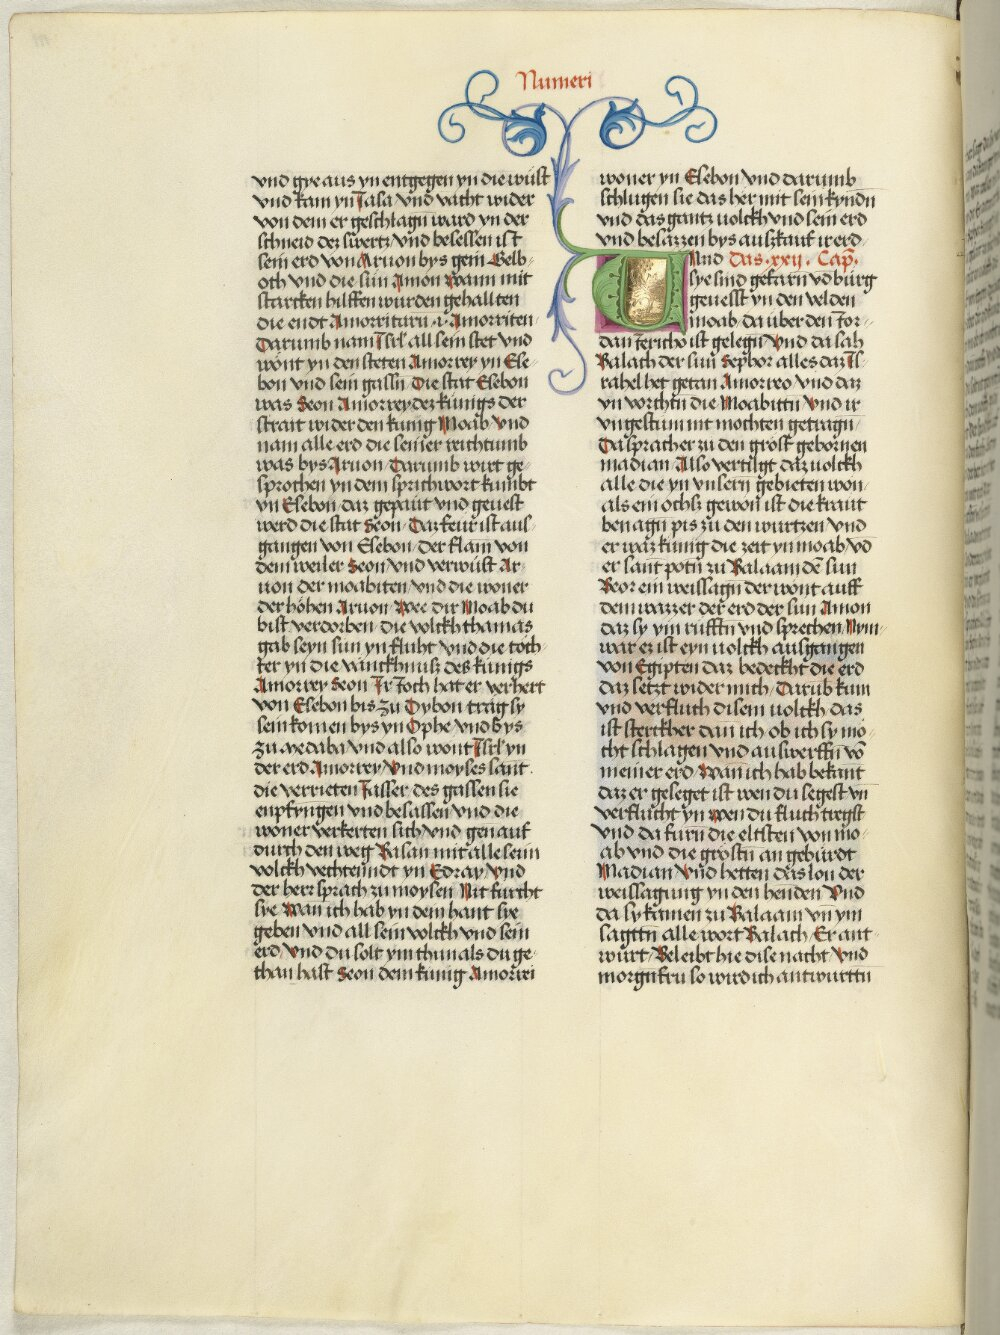 Numeri
vnd gye aus yn entgegen yn die wüst
vnd kam yn Jasa vnd vacht wider
von dem er geschlagn ward yn der
schneid dez swertz vnd besessen ist
sein erd von Arnon bys gein Gelb-
oth vnd die sun Amon wann mit
starcken hilffen wurden gehallten
die endt Amorritaru v Amorriten
Darumb nam Jsrl all sein stet vnd
wont yn den steten Amorrey yn Ese-
bon vnd sein gassn Die stat Esebon
was Seon Amorrey dez kunigs der
strait wider den kunig Moab vnd
nam alle erd die seiner reichtumb
was bys Arnon Darumb wirt ge-
sprochen yn dem sprichwort kumbt
yn Esebon daz gepaut vnd geuest
werd die stat Seon Daz feur ist aus-
gangen von Esebon der flam von
dem weiler Seon vnd verwüst Ar-
non der moabiten vnd die woner
der höhen Arnon Wee dir Moab du
bist verdorben die volckh thamas
gab seyn sun yn fluht vnd die töch-
ter yn die vanckhnusz des kunigs
Amorrey Seon Jr Joch hat er verhert
von Esebon bis zu Dybon träg sy
sein komen bys yn Ophe vnd bys
zu Medaba vnd also wont Jsrl yn
der erd Amorrey vnd moyses sant
die verrieten Jasser des gassen sie
enpfyngen vnd besassen vnd die
woner verkerten sich vnd gen auf
durch den weg Basan mit alle seim
volckh vechtenndt yn Edray vnd
der herr sprach zu moysen Nit furcht
sye Wan ich hab yn dem hant sye
geben vnd all sein volckh vnd sein
erd vnd du solt ym thun als du ge-
than hast Seon dem kunig Amorri
woner yn Esebon vnd darumb
schlugen sie das her mit sein kyndn
vnd das gantz uolckh vnd sein erd
vnd besazzen bys auszkauf ir erd
Und Das .xxij. Cap.
sye sind gefarn vd bürg
geuesst yn den velden
moab da uber den Jor-
dan Jericho ist gelegn vnd da sah
Balach der sun Sephor alles daz Js-
rahel het getan Amorreo vnd daz
yn vorchtn die Moabittn vnd ir
vngestum nit mochten getragn
Da sprach er zu den gröst gebornen
madian Allso vertilgt daz uolckh
alle die yn vnsern gebieten won
als ein ochsz gewon ist die kraut
ben agn pis zu den wurtzen vnd
er waz kunig die zeit yn moab vd
er sant potn zu Balaam de sun
Beor ein weissagn der wont auff
dem wazzer der erd der sun Amon
daz sy ym rufftn vnd sprechen Nym
war er ist eyn uolckh ausgangen
von Egipten daz bedeckht die erd
daz setzt wider mich Darub kum
vnd verfluch disem uolckh das
ist sterckher dan ich ob ich sy mo-
cht schlagen vnd auswerffn vo
meiner erd Wan ich hab bekant
daz er geseget ist wen du segest vn
verflucht yn wen du fluch tregst
vnd da furn die eltsten von mo-
ab vnd die gröstn an gebürdt
Madian vnd hetten das lon der
weissagung yn den henden vnd
da sy kamen zu Balaam vn ym
sagttn alle wort Balach Er ant-
wurt Beleibt hie dise nacht vnd
morgn fru so wird ich antwurttn